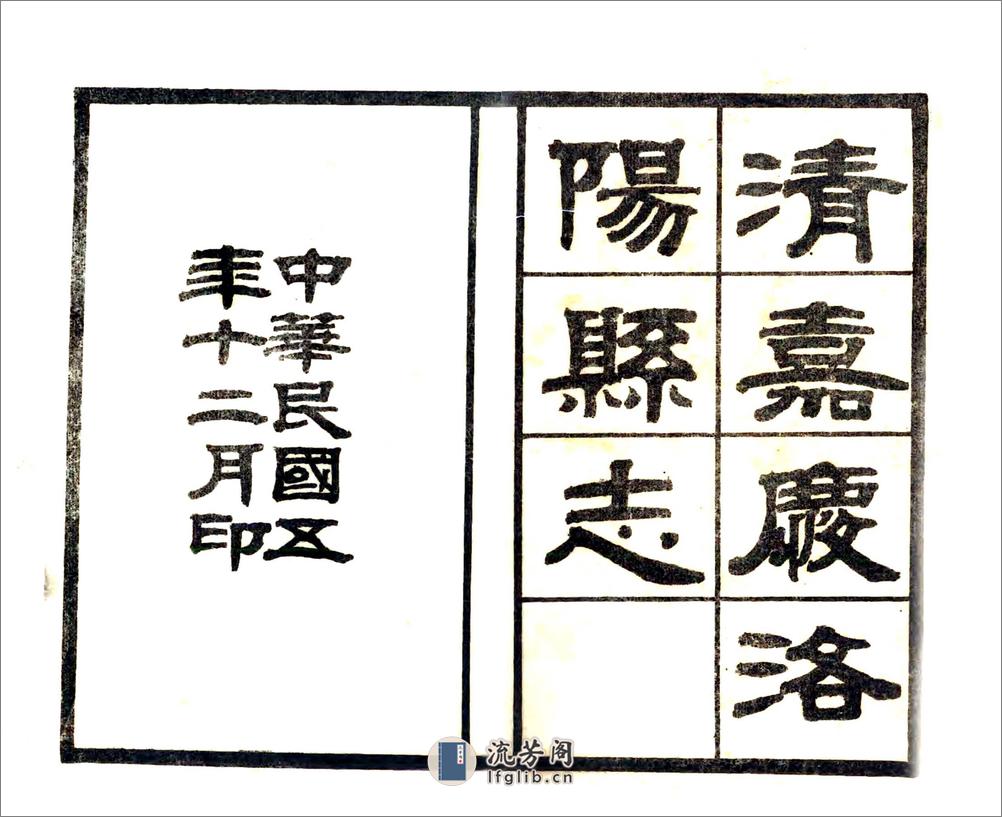 清嘉慶洛
陽縣志
中華民國五
年十二月印
流芳阁
lfglib.cn